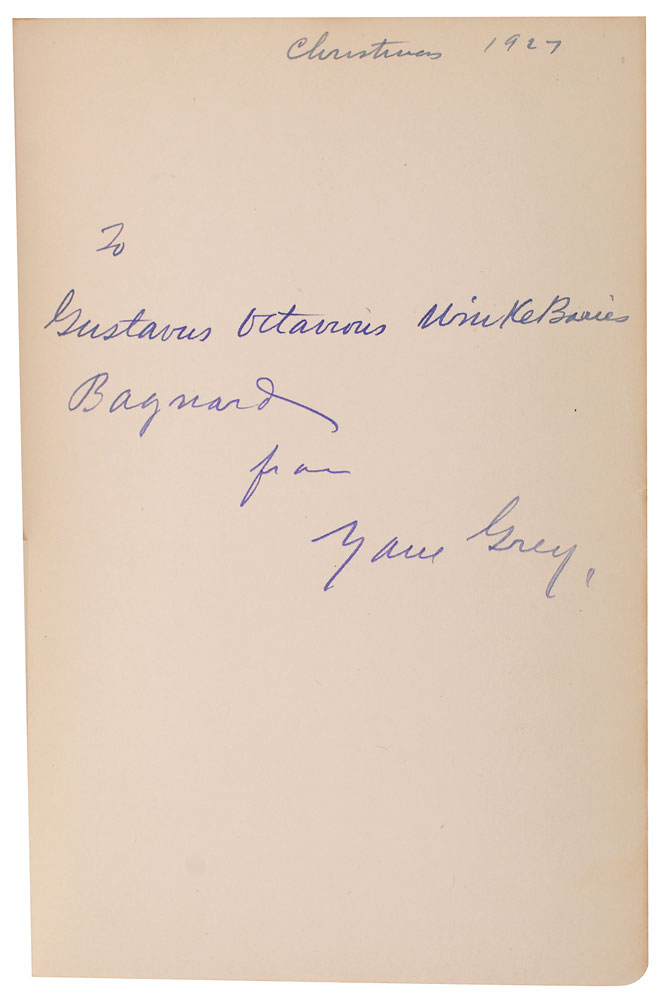 Christmas 1927
To
Gustavus Octavious
Bagnard
from
Zane Grey.